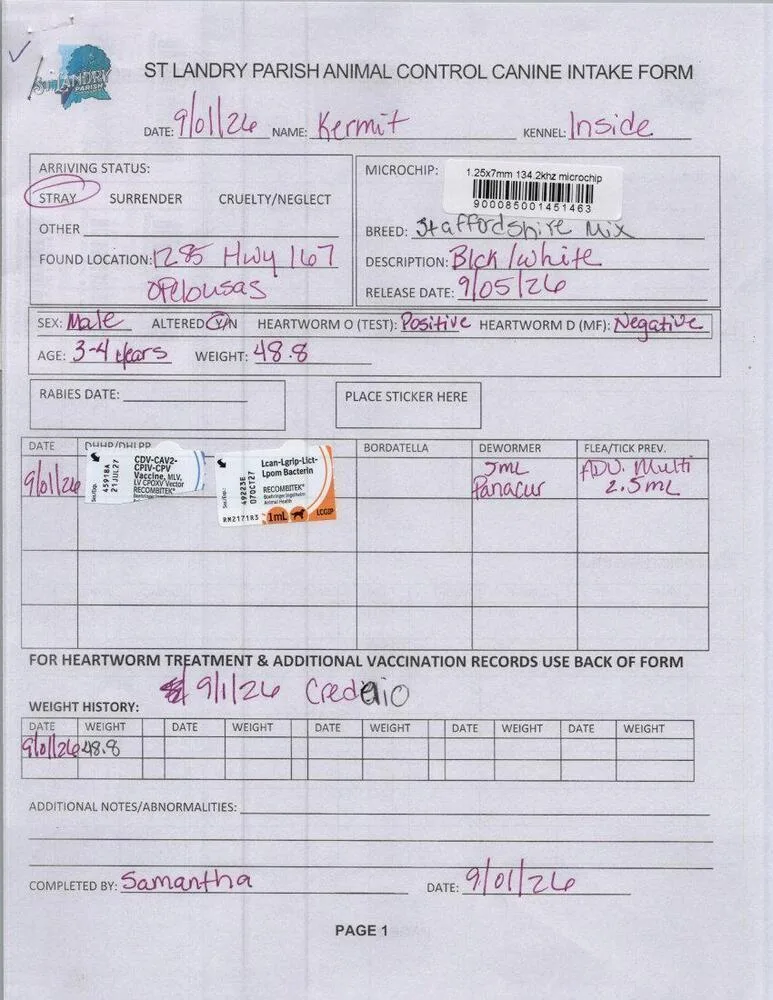 ST LANDRY
PARISH
ST LANDRY PARISH ANIMAL CONTROL CANINE INTAKE FORM
DATE: 9/01/26 NAME: Kermit KENNEL: Inside
ARRIVING STATUS:
STRAY SURRENDER CRUELTY/NEGLECT
OTHER
FOUND LOCATION: 1285 Hwy 167
Opelousas
MICROCHIP: 1.25x7mm 134.2khz microchip
900085001451463
BREED: Staffordshire Mix
DESCRIPTION: Blck/white
RELEASE DATE: 9/05/26
SEX: Male ALTERED Y/N HEARTWORM O (TEST): Positive HEARTWORM D (MF): Negative
AGE: 3-4 years WEIGHT: 48.8
RABIES DATE:
PLACE STICKER HERE
DATE DHHP/DHLPP BORDATELLA DEWORMER FLEA/TICK PREV.
9/01/26
45918A
21JUL27
CDV-CAV2-
CPIV-CPV
Vaccine, MLV,
LV CPOXV Vector
RECOMBITEK
Boehringer Ingelheim
49223E
07OCT27
Lcan-Lgrip-Lict-
Lpom Bacterin
RECOMBITEK
Boehringer Ingelheim
Animal Health
RM2171R3 1mL LCGIP
5mL
Panacur
ADV. Multi
2.5mL
FOR HEARTWORM TREATMENT & ADDITIONAL VACCINATION RECORDS USE BACK OF FORM
9/1/26 Credelio
WEIGHT HISTORY:
DATE WEIGHT DATE WEIGHT DATE WEIGHT DATE WEIGHT DATE WEIGHT
9/01/26 48.8
ADDITIONAL NOTES/ABNORMALITIES:
COMPLETED BY: Samantha DATE: 9/01/26
PAGE 1